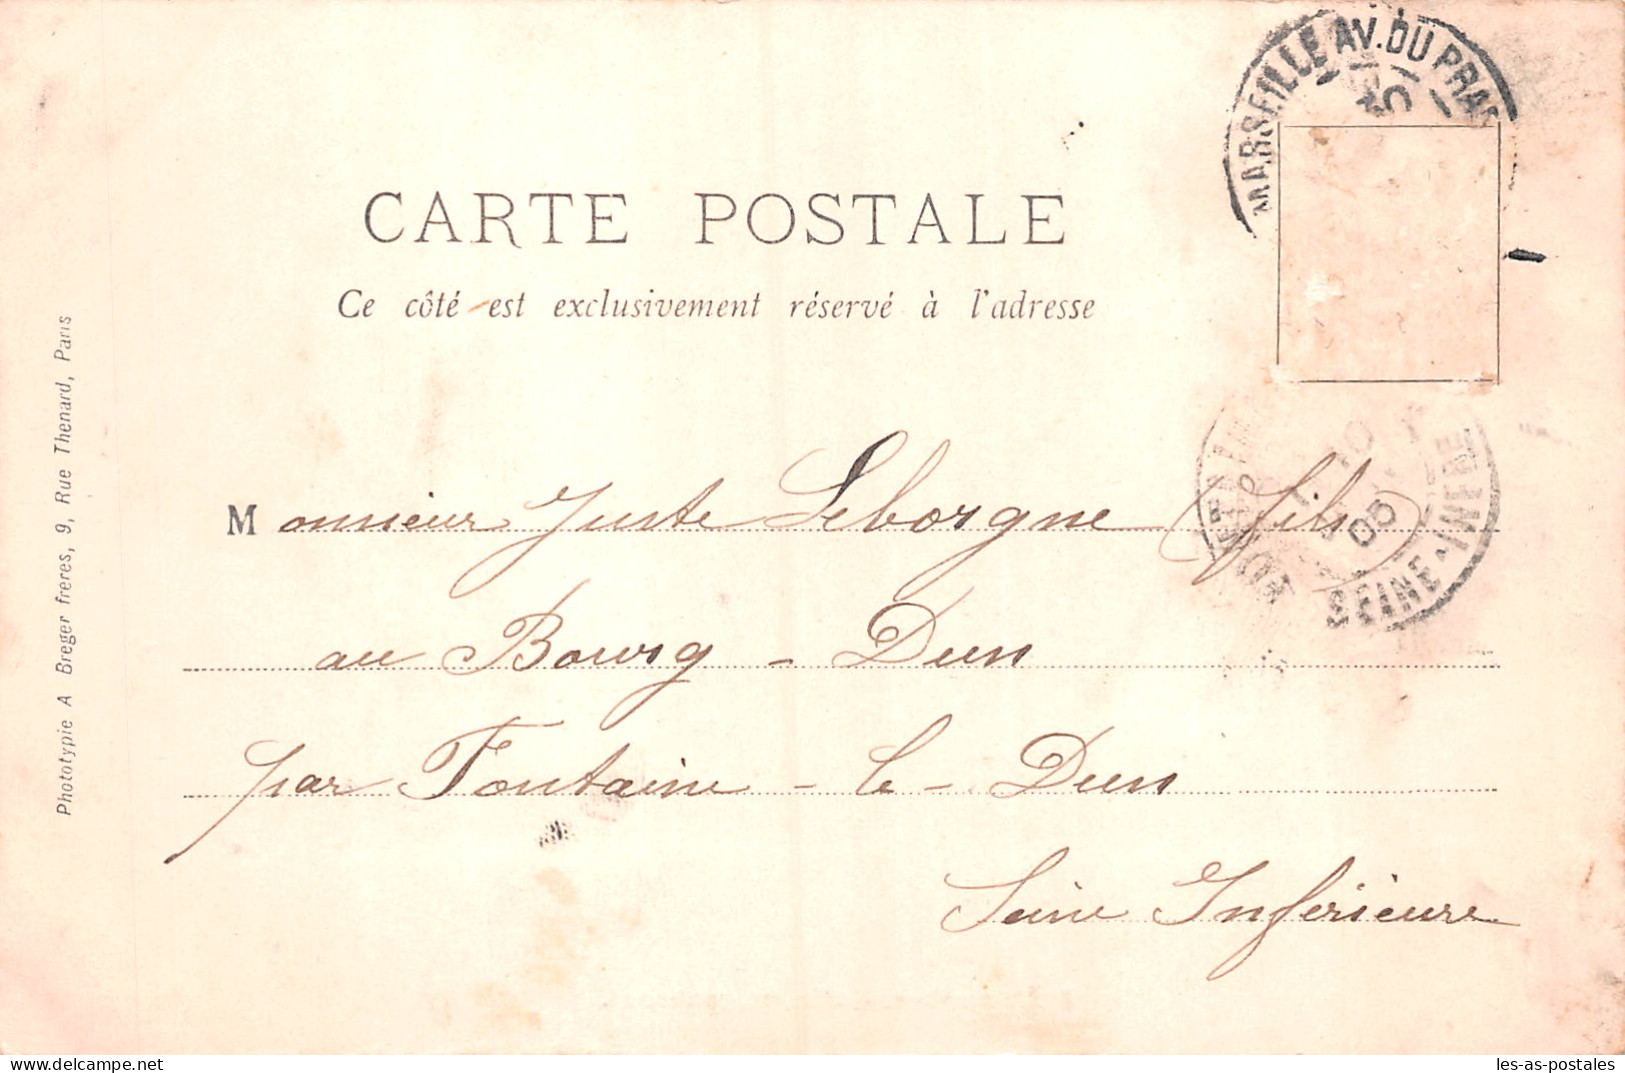 MARSEILLE AV. DU PRAD
CARTE POSTALE
Ce côté est exclusivement réservé à l'adresse
Phototypie A Breger frères, 9, Rue Thenard, Paris
Monsieur Juste Leborgne (fils)
au Bourg - Dun
par Fontaine - le - Dun
Seine Inférieure
05
SEINE-INFRE
les-as-postales